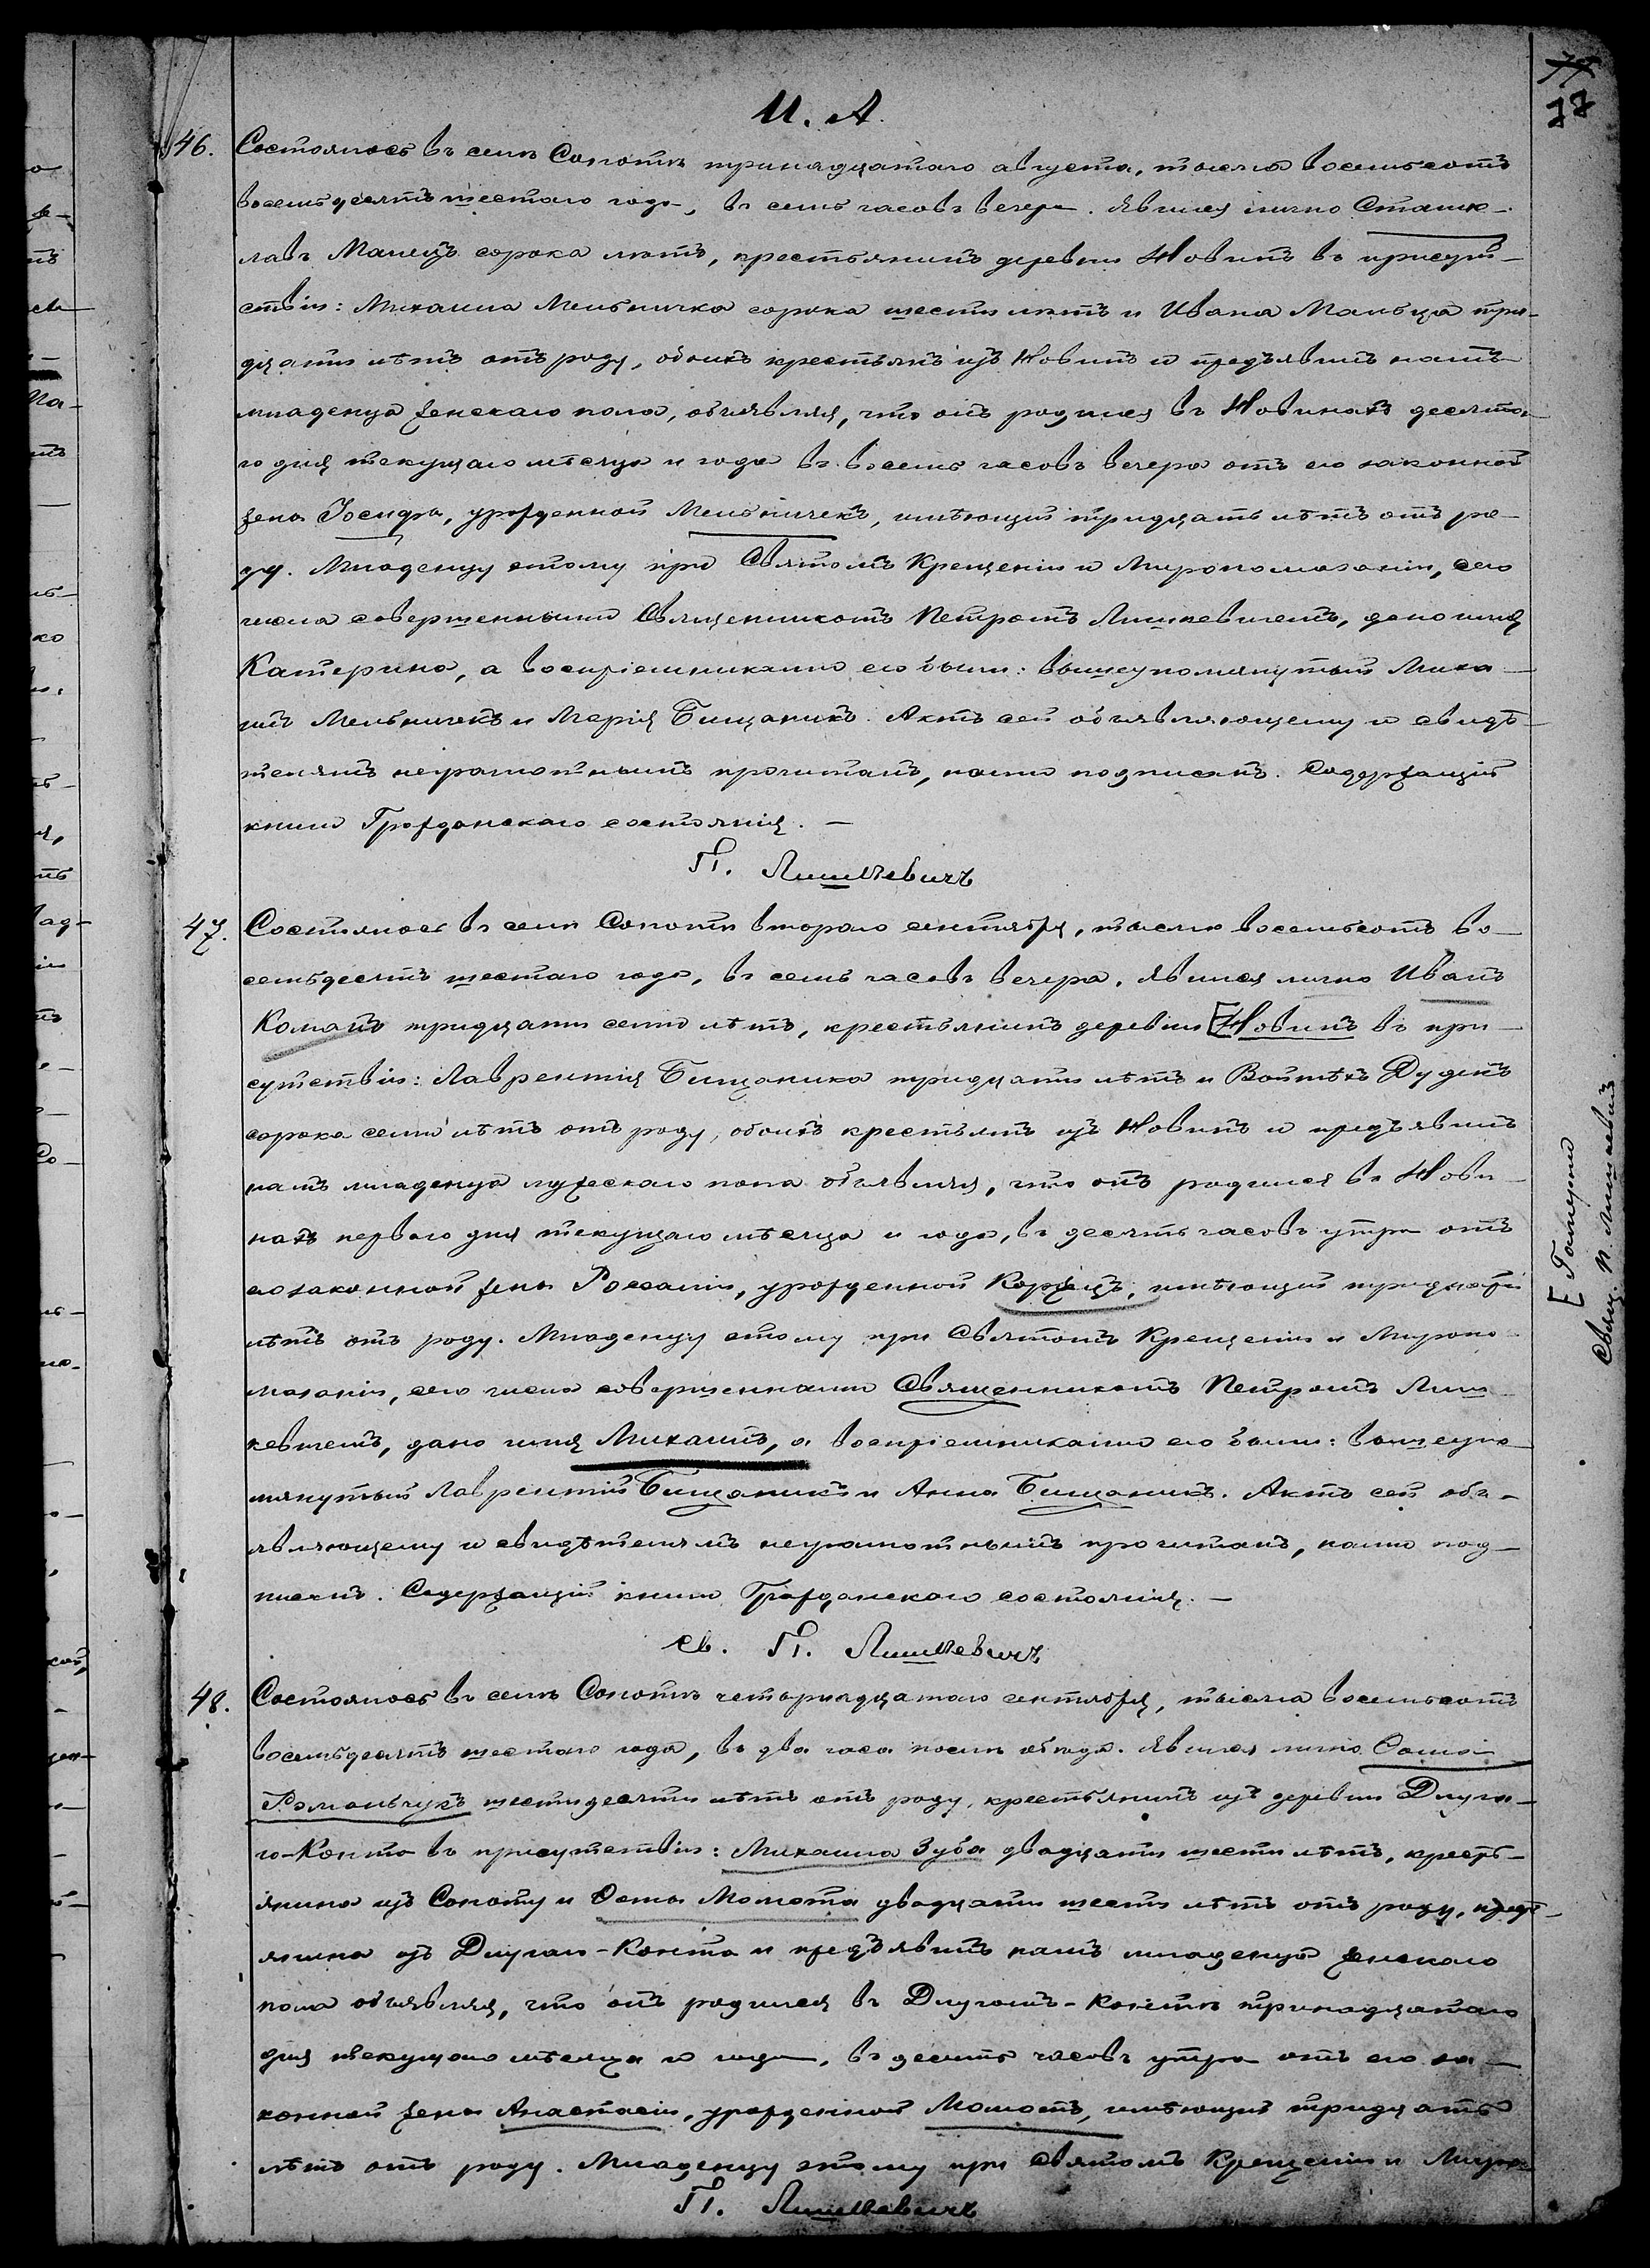 И. А.
77
46. Состоялось въ селѣ Сопотѣ тринадцатаго августа, тысяча восемьсотъ
восемьдесятъ шестаго года, въ семь часовъ вечера. Явился лично Станис-
лавъ Малецъ сорока лѣтъ, крестьянинъ деревни Новинъ въ присут-
ствіи: Михаила Мельничка сорока шести лѣтъ и Ивана Мальца три-
дцати лѣтъ отъ роду, обоихъ крестьянъ изъ Новинъ и предъявилъ намъ
младенца женскаго пола, объявляя, что онъ родился въ Новинахъ десята-
го дня текущаго мѣсяца и года въ восемь часовъ вечера отъ его законной
жены Іосифы, урожденной Мельничекъ, имѣющей тридцать лѣтъ отъ ро-
ду. Младенцу этому при Святомъ Крещеніи и Миропомазаніи, сего
числа совершенными Священникомъ Петромъ Лишкевичемъ, дано имя
Катерина, а воспріемниками его были: вышеупомянутый Миха-
илъ Мельничекъ и Марія Бищаникъ. Актъ сей объявляющему и свидѣ-
телямъ неграмотнымъ прочитанъ, нами подписанъ. Содержащій
книги Гражданскаго состоянія. —
П. Лишкевичъ
47. Состоялось въ селѣ Сопотѣ втораго сентября, тысяча восемьсотъ во-
семьдесятъ шестаго года, въ семь часовъ вечера. Явился лично Иванъ
Команъ тридцати семи лѣтъ, крестьянинъ деревни [Новинъ въ при-
сутствіи: Лаврентія Бищаника тридцати лѣтъ и Войтѣхъ Дудекъ
сорока семи лѣтъ отъ роду, обоихъ крестьянъ изъ Новинъ и предъявилъ
намъ младенца мужескаго пола объявляя, что онъ родился въ Нови-
нахъ перваго дня текущаго мѣсяца и года, въ десять часовъ утра отъ
его законной жены Розаліи, урожденной Коржецъ, имѣющей тридцати
лѣтъ отъ роду. Младенцу этому при Святомъ Крещеніи и Миропо-
мазаніи, сего числа совершенными Священникомъ Петромъ Лиш-
кевичемъ, дано имя Михаилъ, а воспріемниками его были: вышеупо-
мянутый Лаврентій Бищаникъ и Анна Бищаникъ. Актъ сей объ-
являющему и свидѣтелямъ неграмотнымъ прочитанъ, нами под-
писанъ. Содержащій книги Гражданскаго состоянія. —
Св. П. Лишкевичъ
48. Состоялось въ селѣ Сопотѣ четырнадцатаго сентября, тысяча восемьсотъ
восемьдесятъ шестаго года, въ два часа послѣ обѣда. Явился лично
Романьчукъ шестидесяти лѣтъ отъ роду, крестьянинъ изъ деревни Длуга-
го-Конта въ присутствіи: Михаила Зуба двадцати шести лѣтъ, кресть-
янина изъ Сопоту и Осты Момота двадцати шести лѣтъ отъ роду, крест-
янина изъ Длугаго-Конта и предъявилъ намъ младенца женскаго
пола объявляя, что онъ родился въ Длугомъ-Контѣ тринадцатаго
дня текущаго мѣсяца и года, въ десять часовъ утра отъ его за-
конной жены Анастасіи, урожденной Момотъ, имѣющей тридцать
лѣтъ отъ роду. Младенцу этому при Святомъ Крещеніи и Миро-
П. Лишкевичъ
Свящ. П. Лишкевичъ